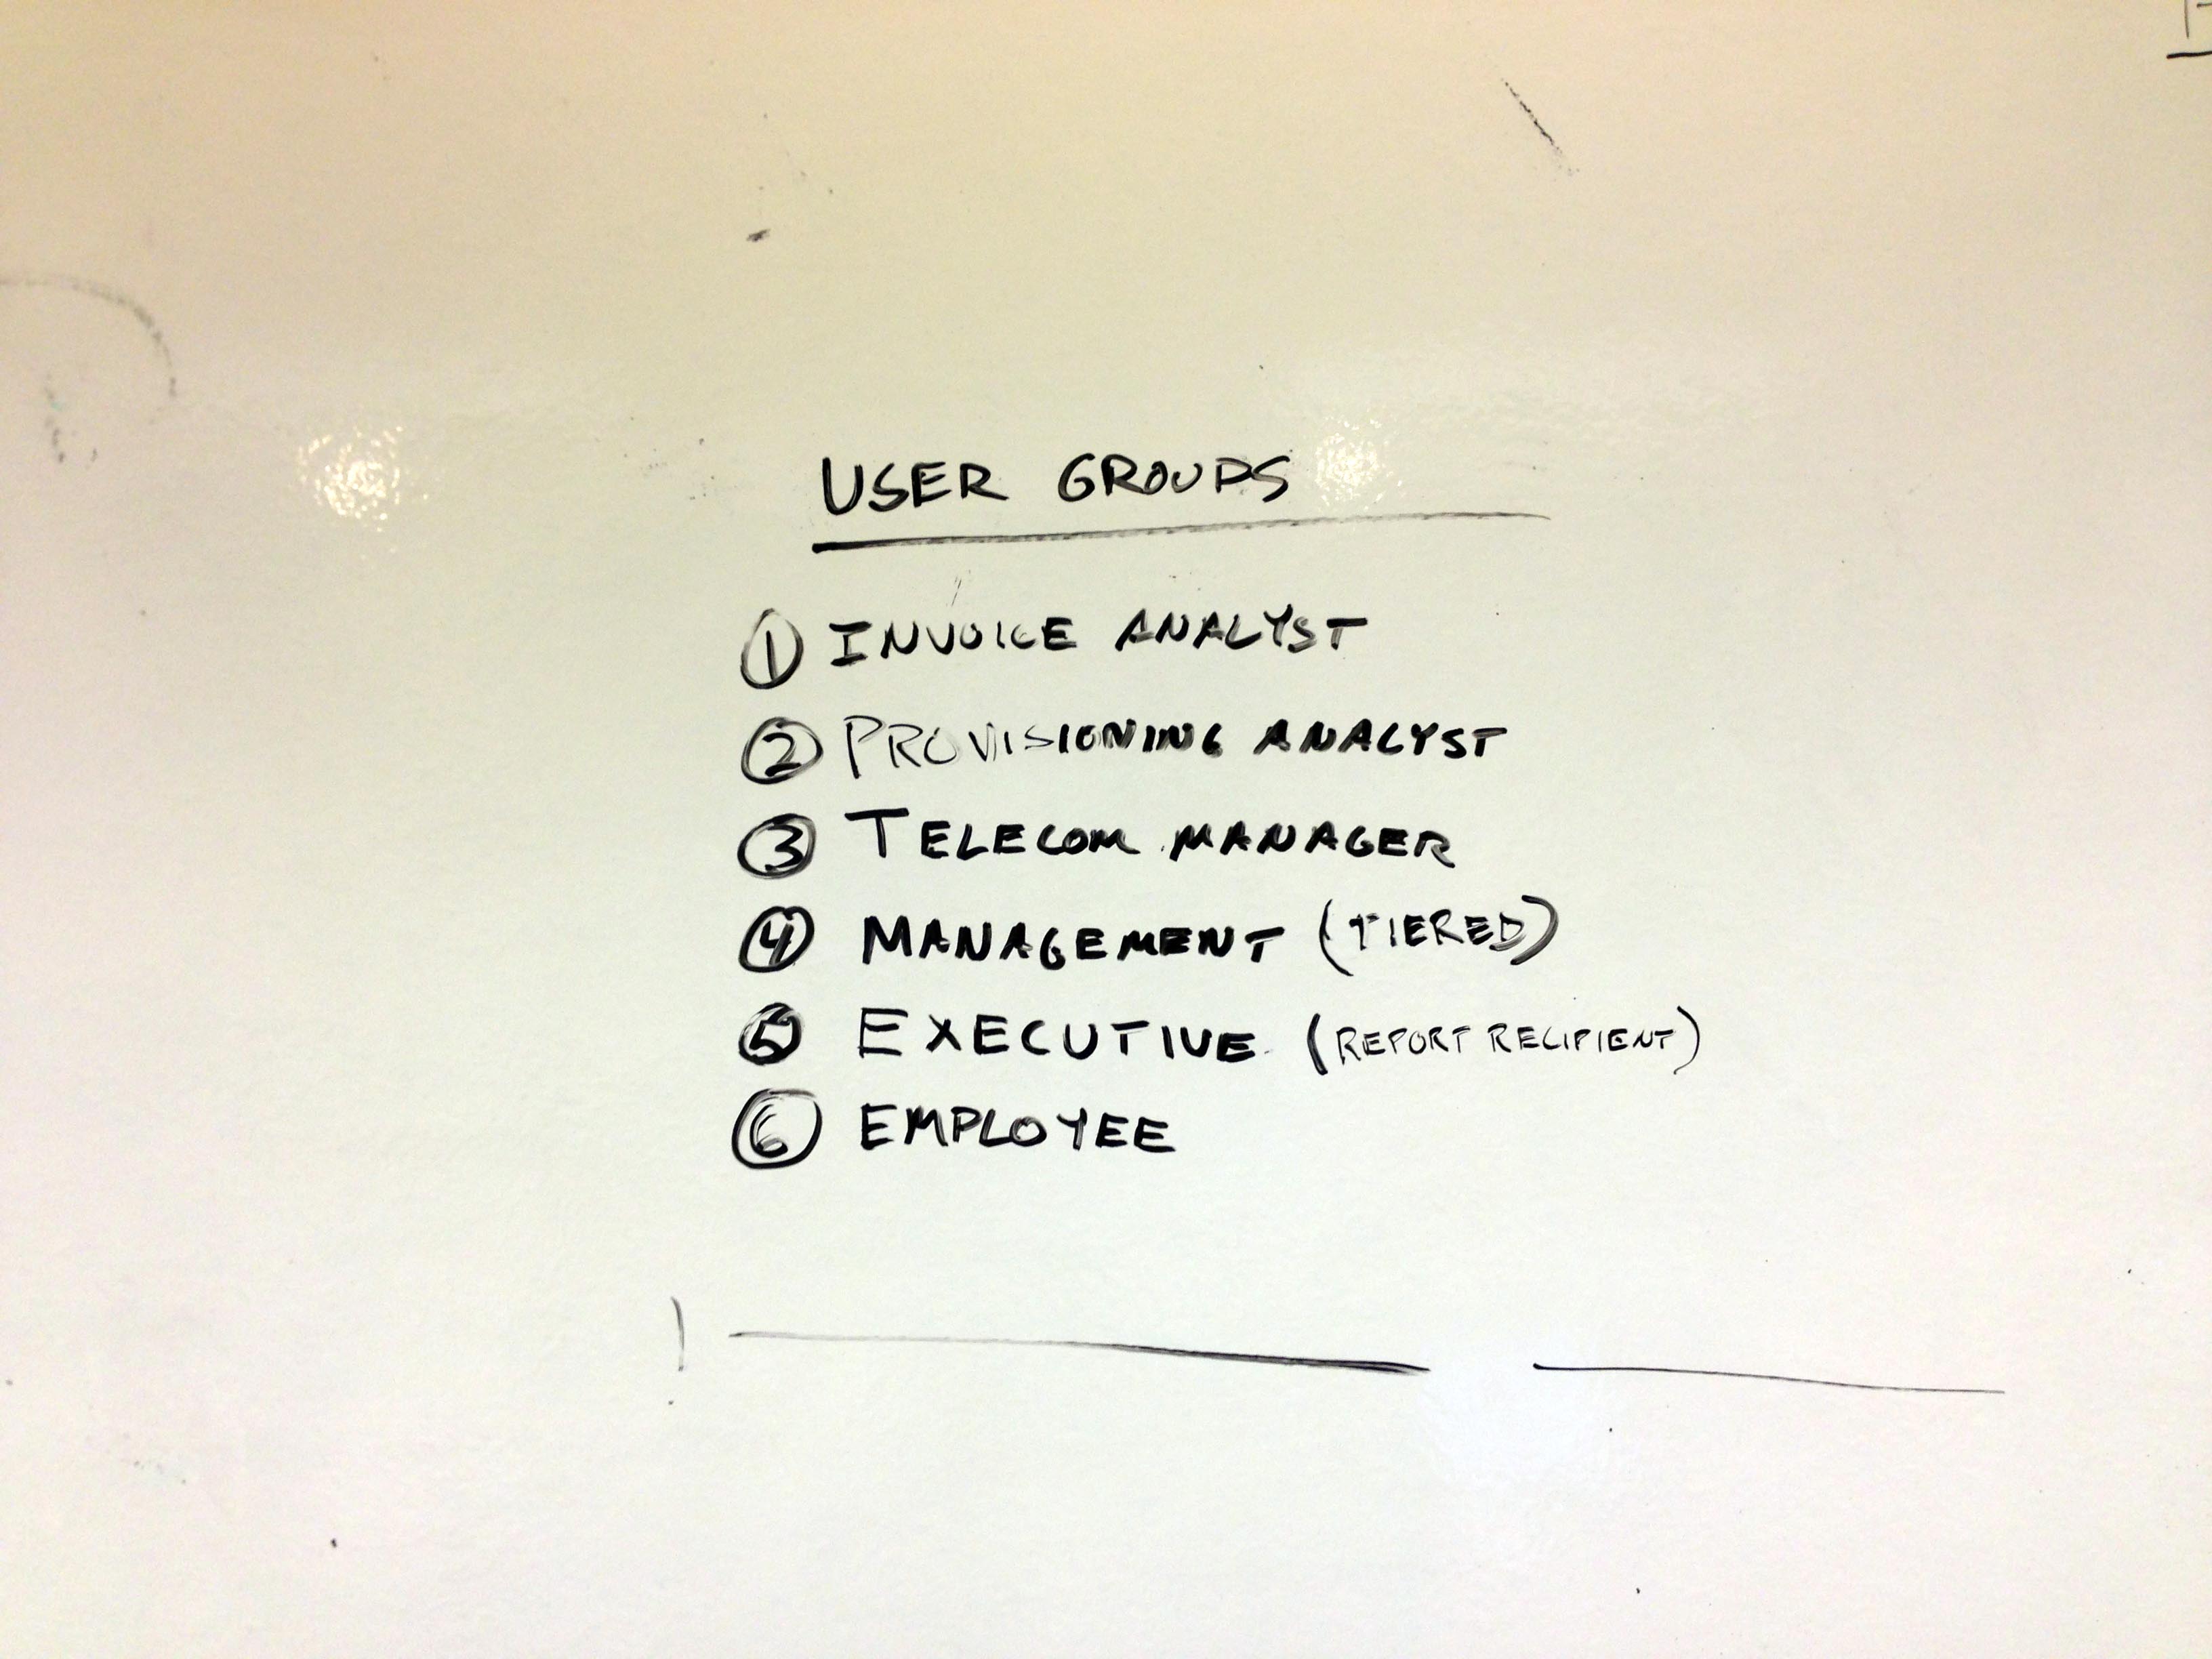 USER GROUPS
① INVOICE ANALYST
② PROVISIONING ANALYST
③ TELECOM MANAGER
④ MANAGEMENT (TIERED)
⑤ EXECUTIVE (REPORT RECIPIENT)
⑥ EMPLOYEE